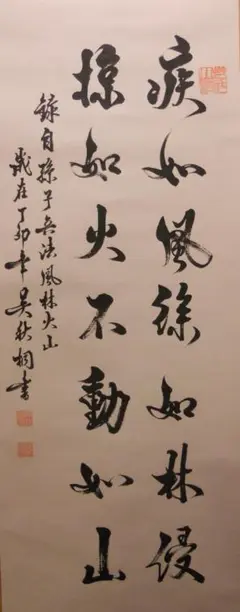 疾如風徐如林侵
掠如火不動如山
錄自孫子兵法風林火山
歲在丁卯年吳秋桐書